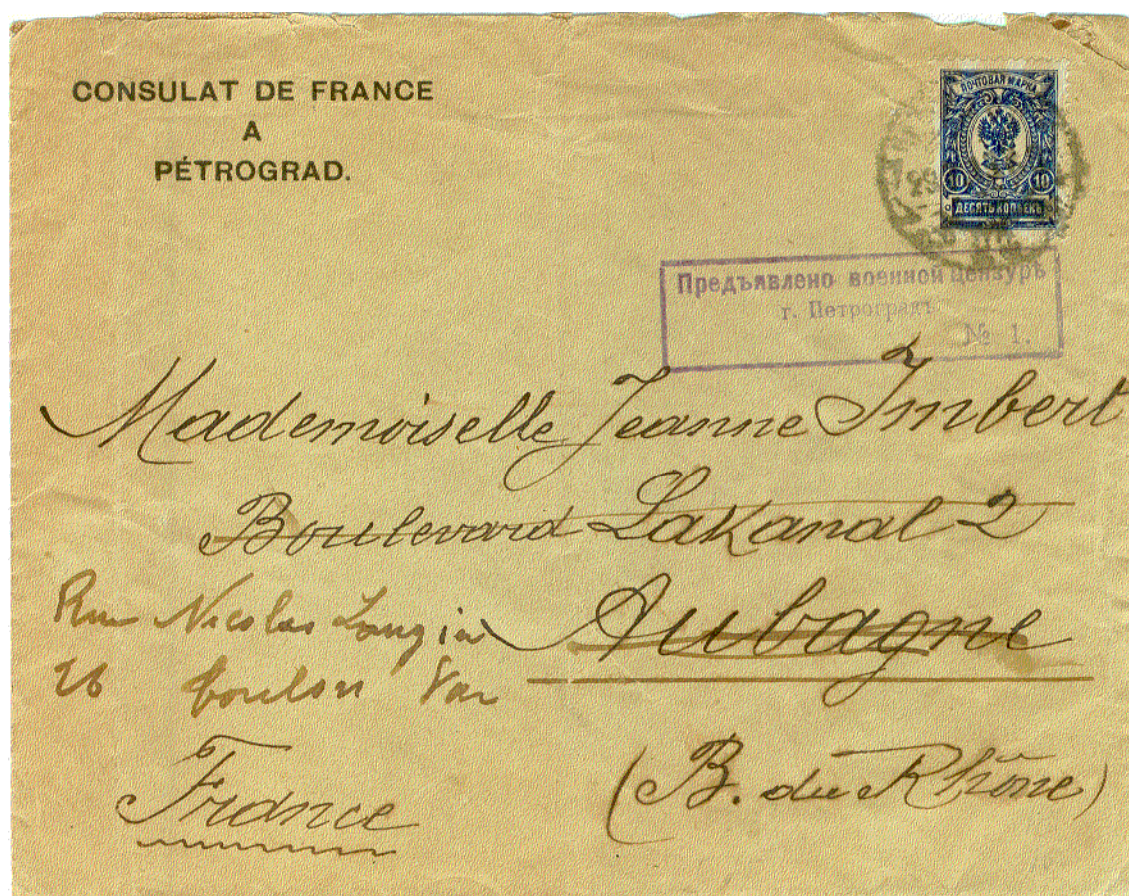 CONSULAT DE FRANCE
A
PÉTROGRAD.
ПОЧТОВАЯ МАРКА
10 10
ДЕСЯТЬ КОПѢЕКЪ
Предъявлено военной цензурѣ
г. Петроградъ
№ 1.
Mademoiselle Jeanne Imbert
Boulevard Lakanal 2
Aubagne
Rue Nicolas
26 toulon Var
(B. du Rhône)
France